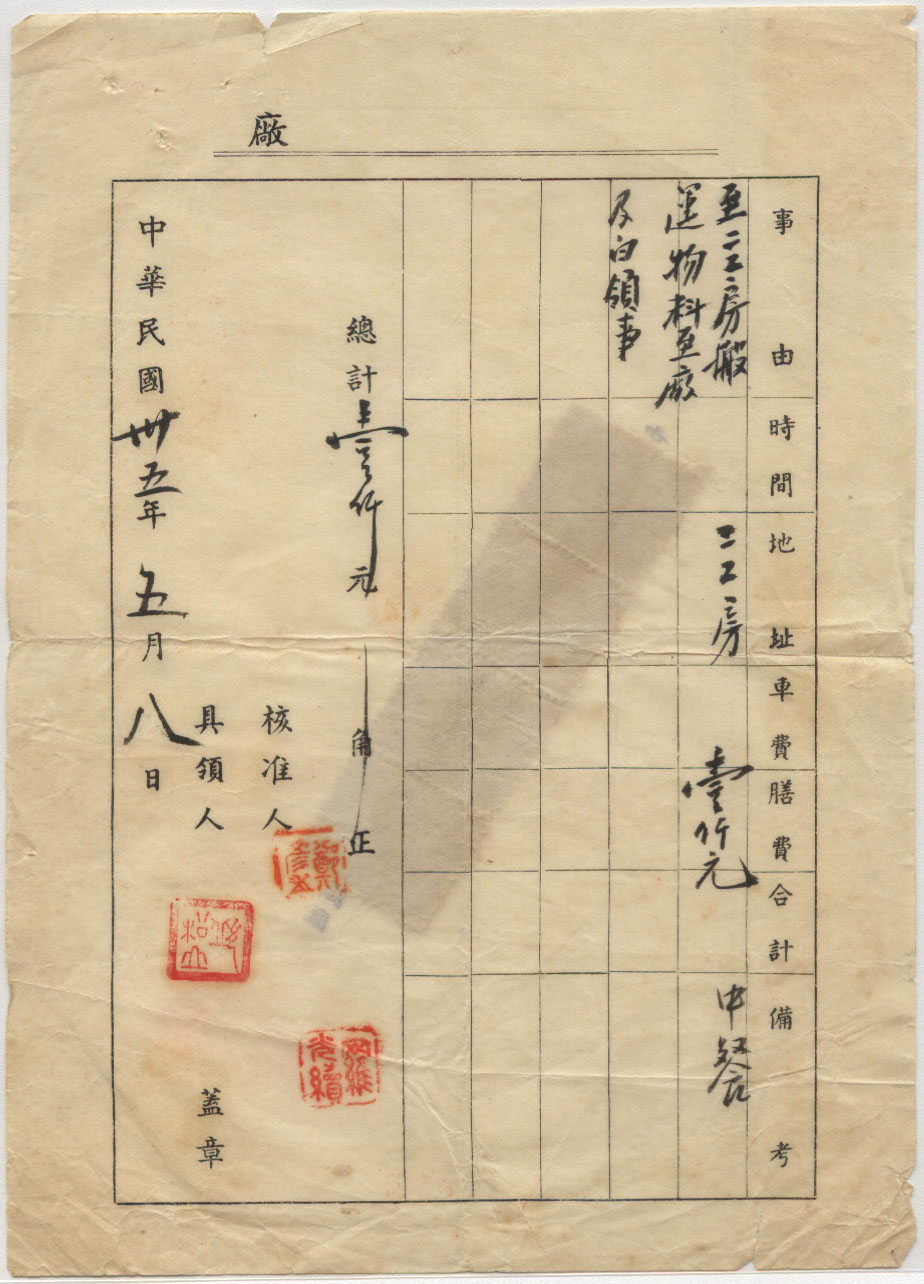 廠
事由 時間 地址 車費 膳費 合計 備考
至二工房搬
運物料至廠
及白領事
二工房
壹仟元
中餐
總計壹仟元 角正
核准人
具領人 蓋章
中華民國卅五年五月八日